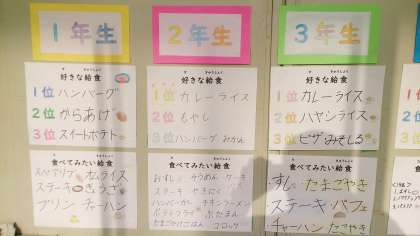 1年生
好きな給食
1位 ハンバーグ
2位 からあげ
3位 スイートポテト
食べてみたい給食
ステーキ
プリン チャーハン
2年生
好きな給食
1位 カレーライス
2位 もやし
3位 ハンバーグ みかん
食べてみたい給食
おすし そうめん ケーキ
ステーキ やきにく
ハンバーガー チキンラーメン
ポテトフライ
コロッケ
3年生
好きな給食
1位 カレーライス
2位 ハヤシライス
3位 ピザ・みそしる
食べてみたい給食
すし たまごやき
ステーキ・パフェ
チャーハン